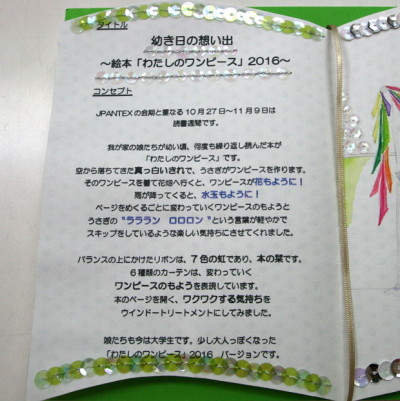 タイトル
幼き日の想い出
～絵本「わたしのワンピース」2016～
コンセプト
JPANTEXの会期と重なる10月27日～11月9日は
読書週間です。
我が家の娘たちが幼い頃、何度も繰り返し読んだ本が
「わたしのワンピース」です。
空から落ちてきた真っ白いきれで、うさぎがワンピースを作ります。
そのワンピースを着て花畑へ行くと、ワンピースが花もように！
雨が降ってくると、水玉もように！
ページをめくるごとに変わっていくワンピースのもようと
うさぎの“ラララン ロロロン”という言葉が軽やかで
スキップをしているような楽しい気持ちにさせてくれました。
バランスの上にかけたリボンは、7色の虹であり、本の栞です。
6種類のカーテンは、変わっていく
ワンピースのもようを表現しています。
本のページを開く、ワクワクする気持ちを
ウインドートリートメントにしてみました。
娘たちも今は大学生です。少し大人っぽくなった
「わたしのワンピース」2016 バージョンです。